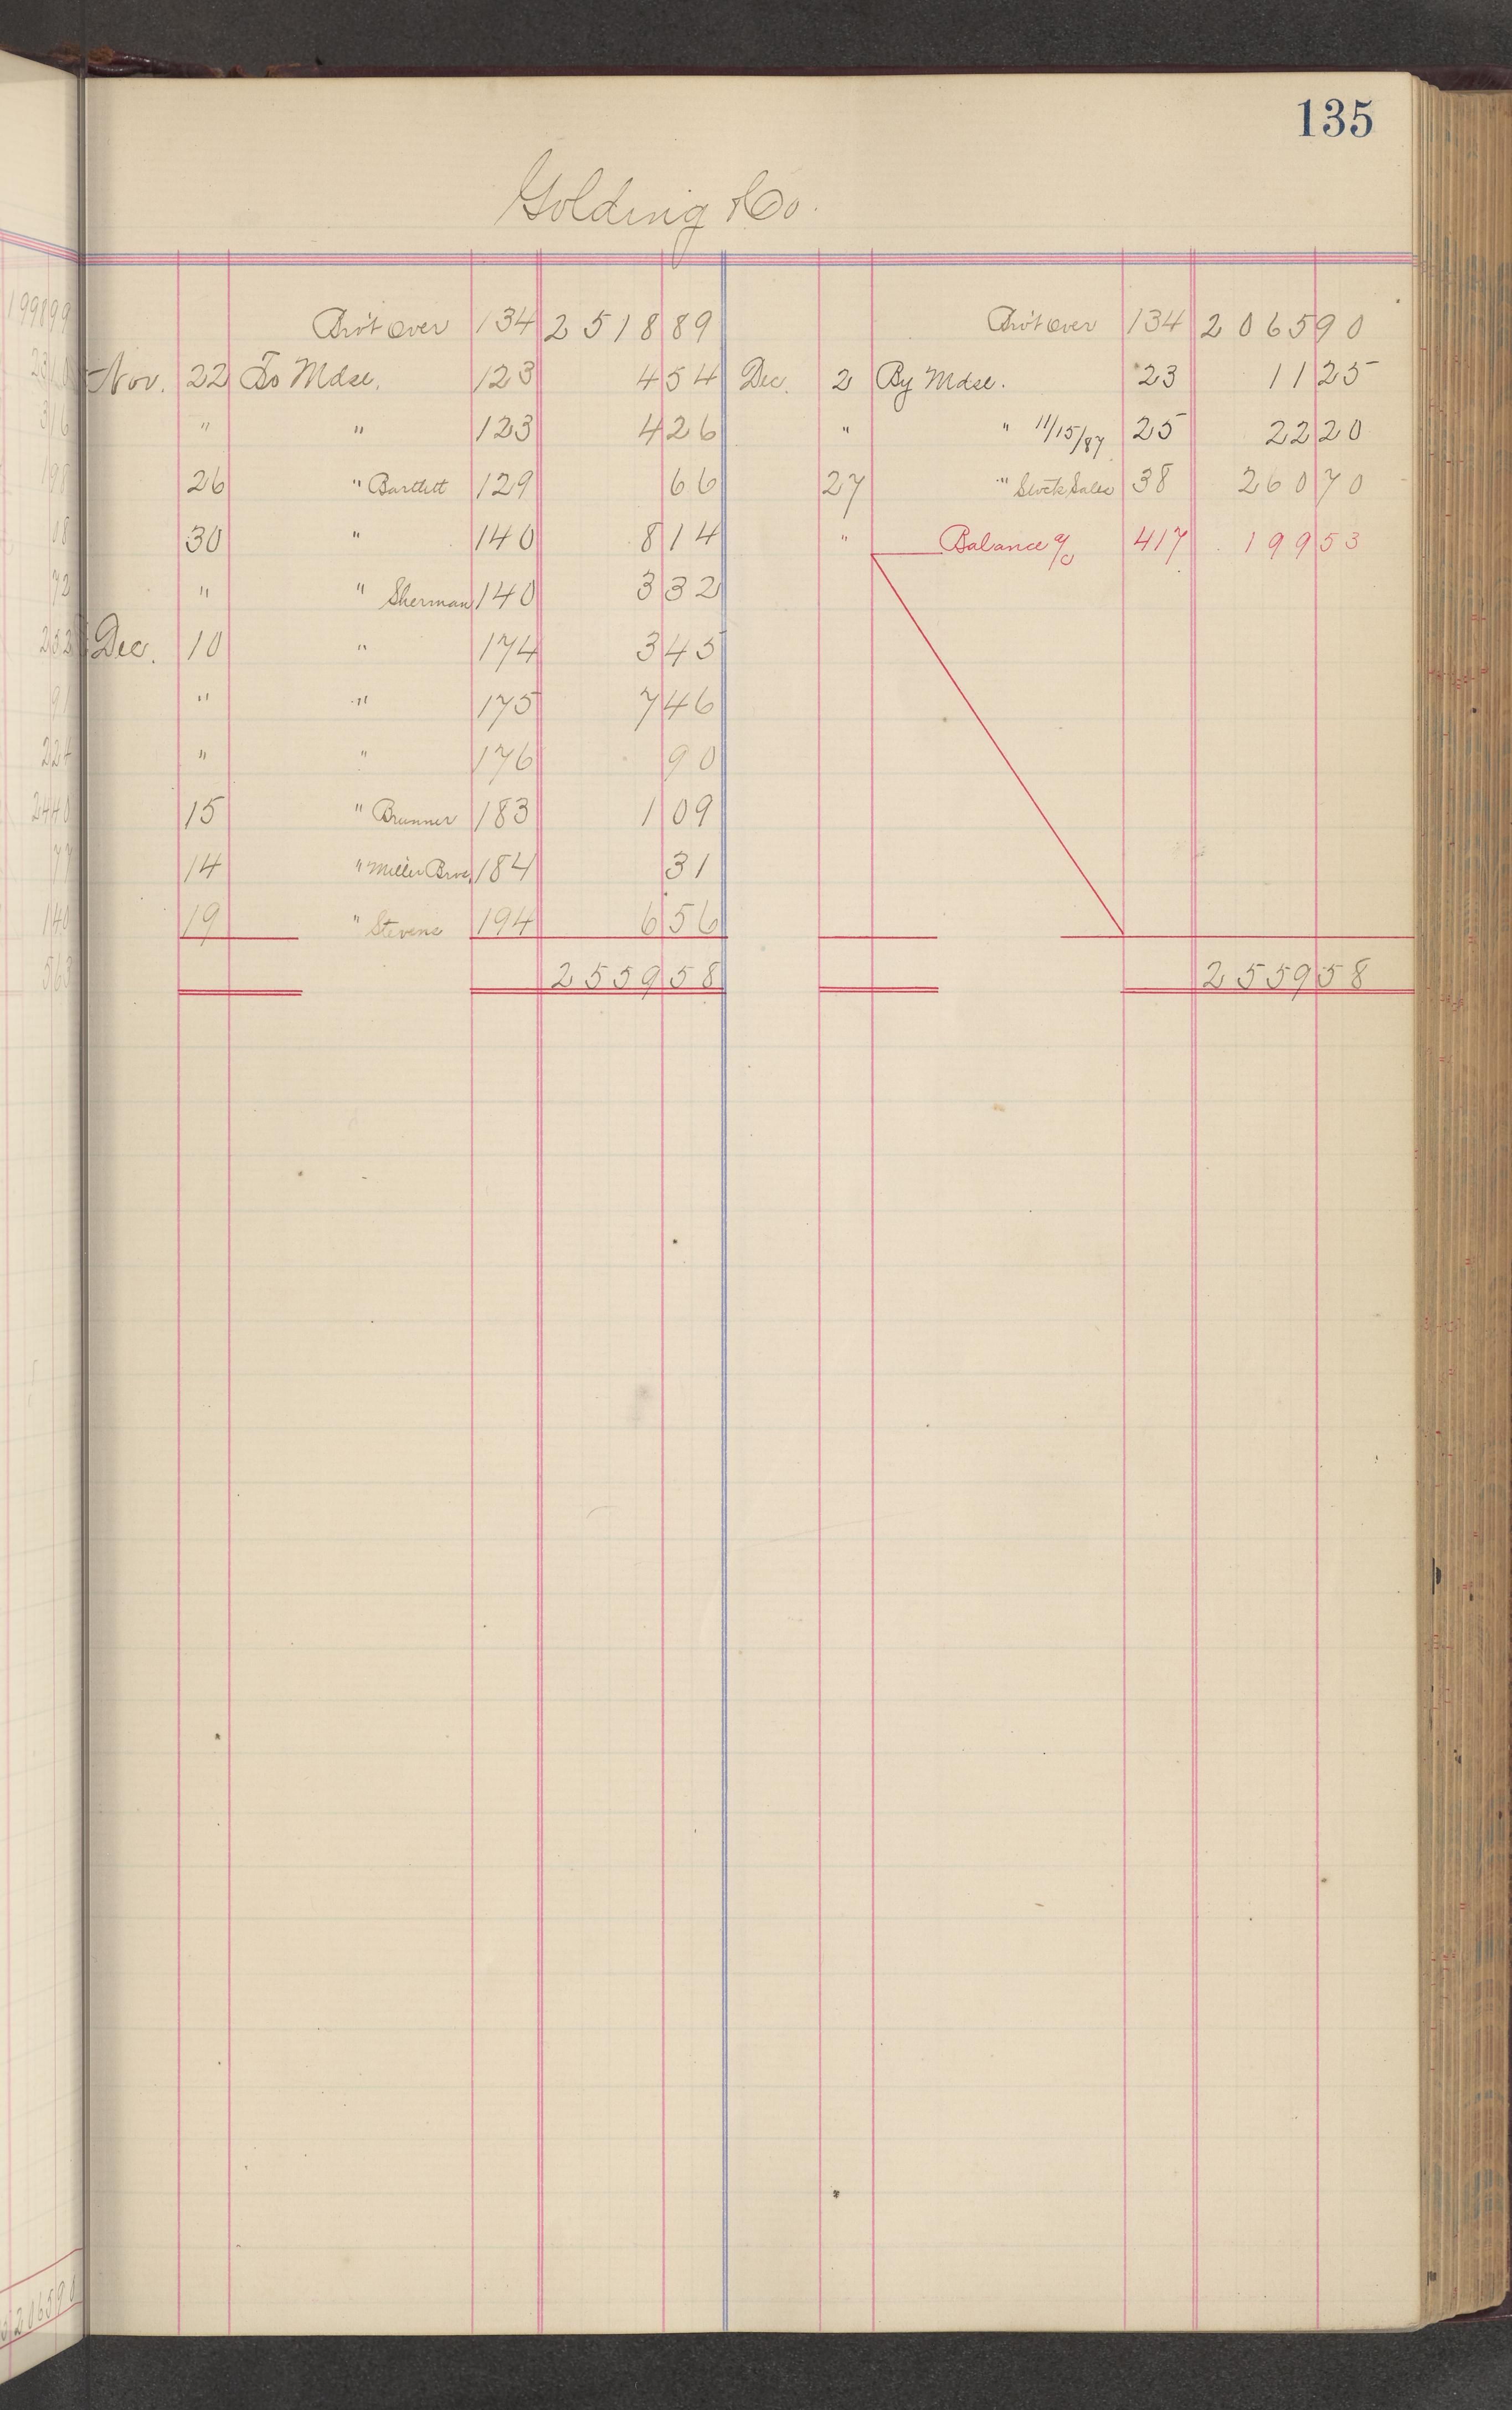 135
Golding & Co.
Bro't Over 134 2518 89 Bro't Over 134 2065 90
Nov. 22 To Mdse. 123 4 54 Dec. 2 By Mdse. 23 11 25
" " 123 4 26 " " 11/15/87 25 22 20
26 " Bartlett 129 66 27 " Stock Sales 38 260 70
30 " 140 8 14 " Balance a/c 417 199 53
" " Sherman 140 3 32
Dec. 10 " 174 3 45
" " 175 7 46
" " 176 90
15 " Brunner 183 1 09
14 " Miller Bros. 184 31
19 " Stevens 194 6 56
2559 58 2559 58